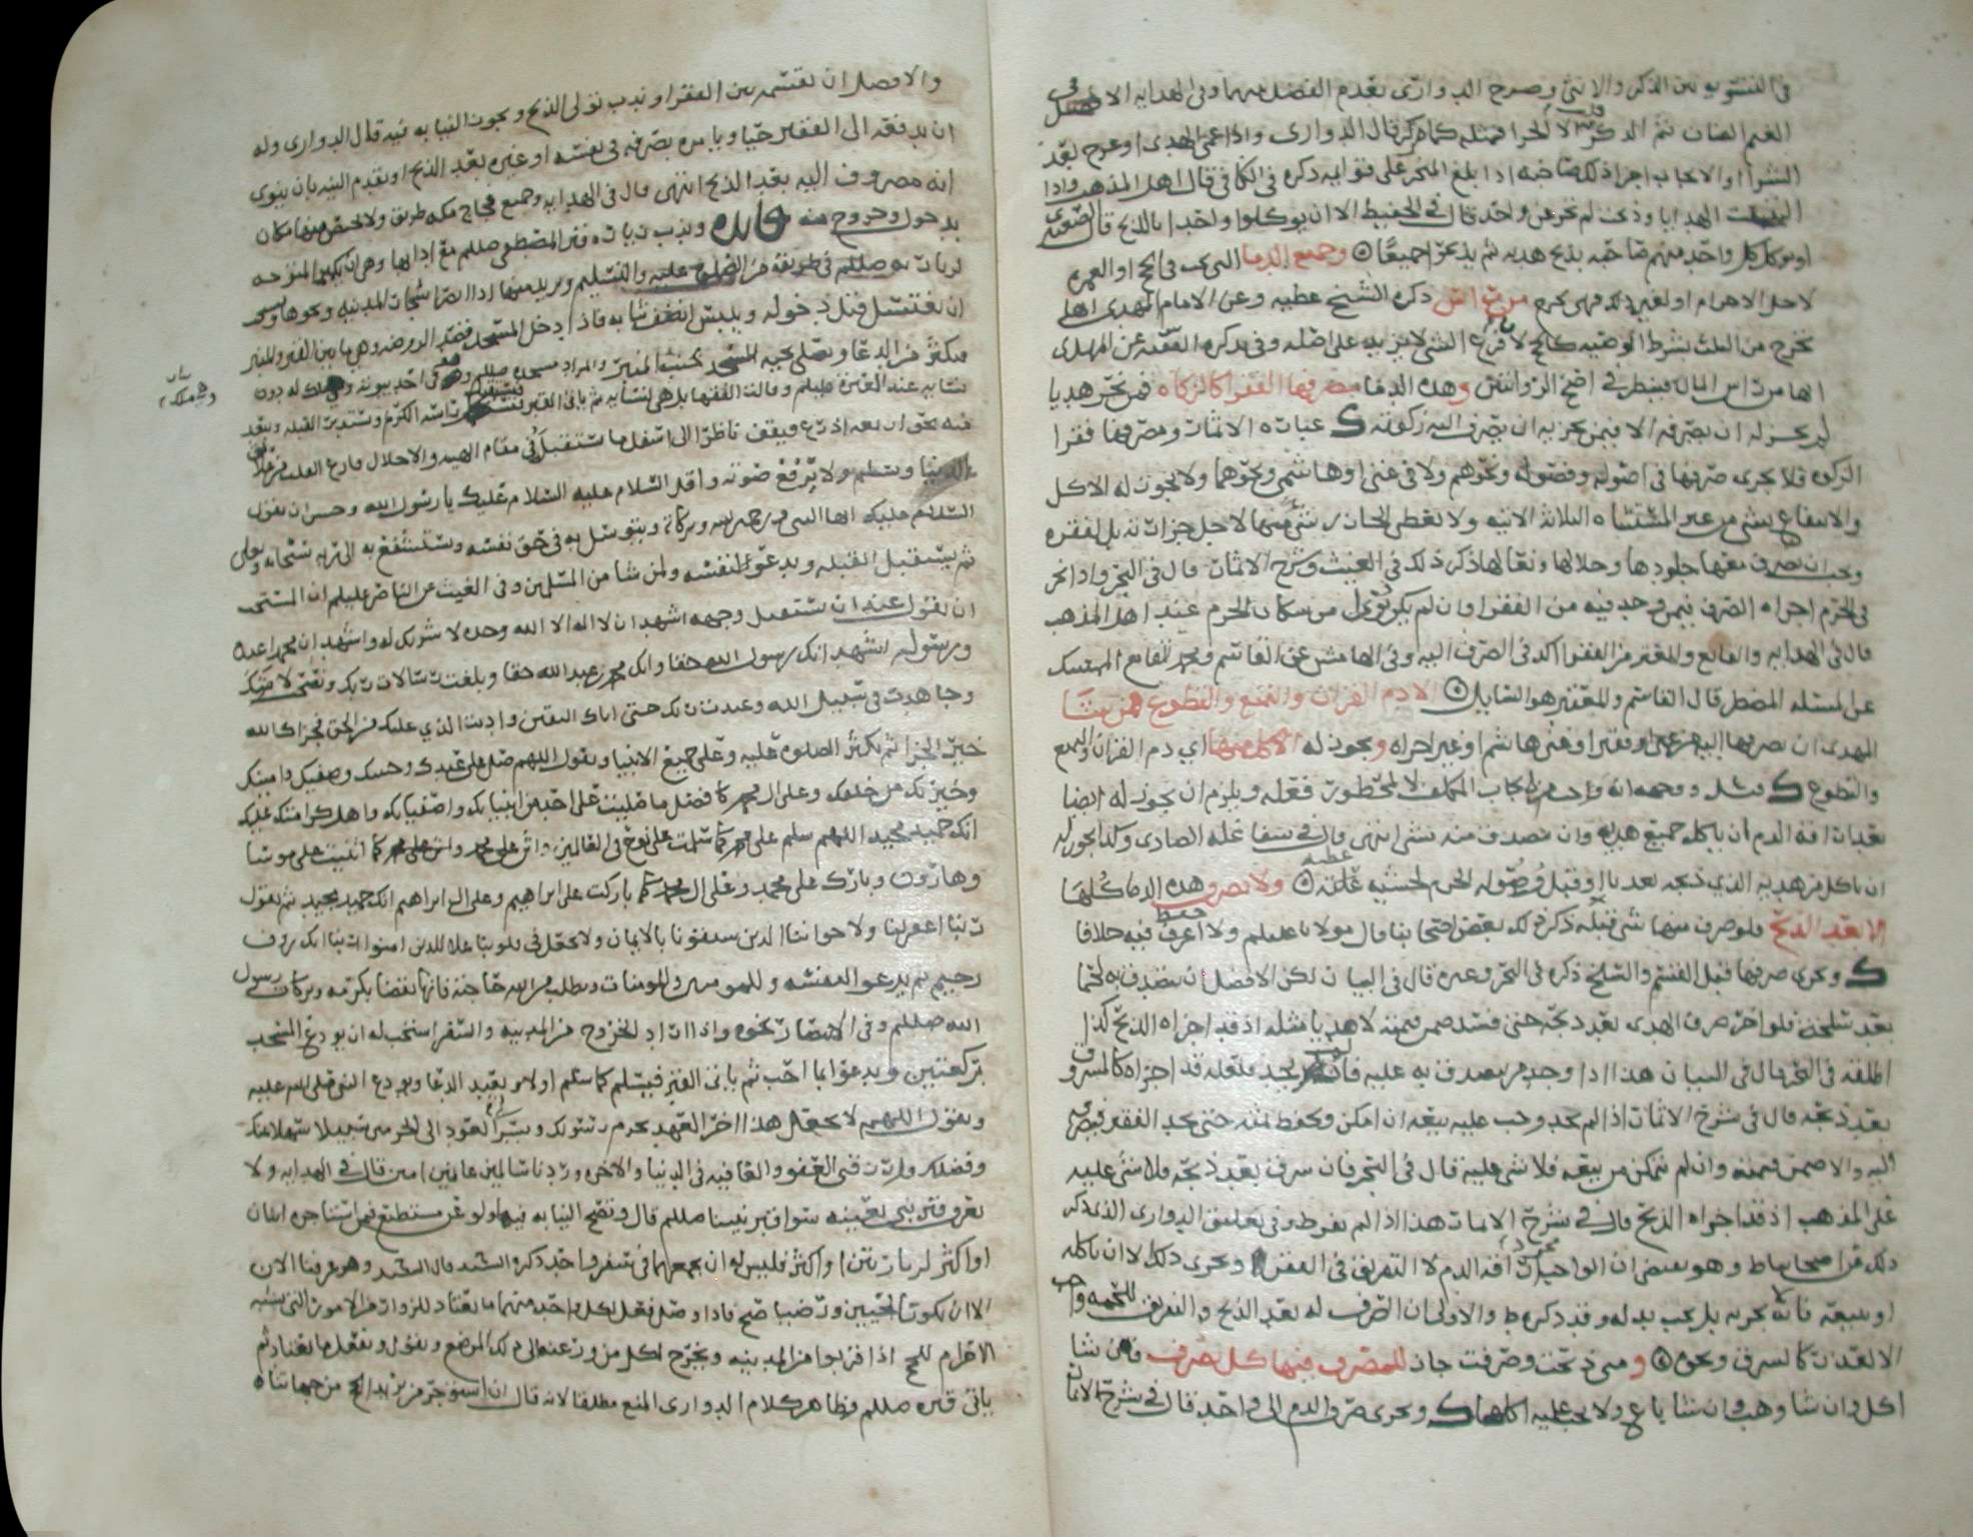 في التسويه بين الذكر والانثى وصرح الدواري بقدم الفضل منهما وفي الهدايه الافضل في
الغنم الضان ثم الذكر كما ذكر قال الدواري واذا عمي الهدي او عرج بعد
الشرا او الايجاب اجزا ذلك صاحبه اذا بلغ المنحر على قوليه ذكره في الكافي قال اهل المذهب واذا
الهدايا وذبحت لم تجز عن واحد قال في الحفيظ الا ان يوكلوا واحدا بالذبح قال
او يوكل كل واحد منهم صاحبه بذبح هديه ثم يذبحوا جميعا وجميع الدما التي تجب في الحج او العمره
لاجل الاحرام او لغير ذلك فهي تخرج من راس ذكره الشيخ عطيه وعن الامام المهدي انها
تخرج من الثلث بشرط الوصيه كالحج لا فرع الشي لا يزيد على اصله وفي تذكرة الفقيه عن المهدي
انها من راس المال وهذه الدما مصرفها الفقرا كالزكاه فمن نحر هديا
لم يجز له ان يصرفه الا فيمن يجزيه ان يصرف اليه زكوته ك عبارة الاثمار ومصرفها فقرا
الزكوه فلا يجزي صرفها في اصوله وفصوله ونحوهم ولا في غني او هاشمي ونحوهما ولا يجوز له الاكل
والانتفاع بشي من غير المستثناه الثلاثه الاتيه ولا يعطى الجازر شي منها لاجل جزارته بل لفقره
ويجب ان يصرف معها جلودها وجلالها ونعالها ذكر ذلك في الغيث وشرح الاثمار قال في البحر واذا نحر
في الحرم اجزاه الصرف فيمن وجد فيه من الفقرا وان لم يكونوا من سكان الحرم عند اهل المذهب
قال في الهدايه والقانع والمعتر من الفقرا اكد في الصرف اليه وفي الهامش عن القاسم ومحمد القانع الممسك
عن المسئله المضطر قال القاسم والمعتر هو السايل الا دم القران والتمتع والتطوع فمن شا
المهدي ان يصرفها اليه من غني او فقير او غيرها شم او غير اجزاه ويجوز له الاكل منها اي دم القران والتمتع
والتطوع ك لا المحظور فعله ويلزم ان يجوز له ايضا
بعد اراقة الدم ان ياكل جميع هديه وان تصدق منه بشي انتهى قال في شفا غلة الصادي وكذا يجوز له
ان ياكل من هديه الذي ذبحه بعد بلوغ وقبل وصوله الحرم لخشيه عليه ولا تصرف هذه الدما كلها
الا بعد الذبح فلو صرف منها شي قبله ذكر ذلك بعض اصحابنا قال مولانا عليلم ولا اعرف فيه خلافا
ك ويجزي صرفها قبل القسم والسلخ ذكره في البحر وغيره قال في البيان لكن الافضل ان يتصدق به لحما
بعد سلخه فلو اخر صرف الهدي بعد ذبحه حتى فسد ضمن قيمته لا هديا مثله اذ قد اجزاه الذبح كذا
اطلقه في البحر قال في البيان هذا اذا وجد من يتصدق به عليه فان لم يجد فلعله قد اجزاه كالمسروق
بعد ذبحه قال في شرح الاثمار اذا لم يجد وجب عليه بيعه ان امكن ويحفظ ثمنه حتى يجد الفقير فيصرفه
اليه والا ضمن قيمته وان لم يتمكن من بيعه فلا شي عليه قال في البحر فان سرق بعد ذبحه فلا شي عليه
على المذهب اذ قد اجزاه الذبح قال في شرح الاثمار هذا اذا لم يفرط وفي تعليق الدواري الذي ذكر
ذلك من اصحابنا ط وهو يقتضي ان الواجب اراقة الدم لا التفريق في الفقرا ويجزي ذلك الا ان ياكله
او يبيعه فانه يجب بدله وقد ذكره ط والاولى ان الصرف له بعد الذبح والتفريق للحمه واجب
الا لعذر كالسرق ونحوه ومتى ذبحت وصرفت جاز للمصرف فيها كل تصرف فان شا
اكل وان شا وهب وان شا باع ولا يجب عليه اكلها ك ويجزي صرف الدم الى واحد قال في شرح الاثمار
والافضل ان يقسمه بين الفقرا وندب تولي الذبح ويجوز النيابه فيه قال الدواري وله
ان يدفعه الى الفقير حيا ويامره بصرفه في نفسه او غيره بعد الذبح او تقدم النيه بان ينوي
انه مصروف اليه بعد الذبح انتهى قال في الهدايه وجميع فجاج مكه طريق ولا يختص منها مكان
بدخول وخروج منه فايده وندب زيارة قبر المصطفى صللم مع ادابها وهي ان يكون المتوجه
لزيارته صللم في طريقه من الصلوه عليه والتسليم ويزيد منها اذا ابصر اشجار المدينه ونحوها ويستحب
ان يغتسل قبل دخوله ويلبس انظف ثيابه فاذا دخل المسجد قصد الروضه وهي ما بين القبر والمنبر
فيكثر من الدعا ويصلي تحيه المسجد بجنب المنبر والمراد مسجده صللم
وقف في احد بيوته وهي ملك له دون
نسايه عند العتره عليلم وقالت الفقها بل هي لنسايه ثم ياتي القبر فيستقبل راسه الكرم ويستدبر القبله ويبعد
منه نحو اربعه اذرع ويقف ناظرا الى اسفل ما يستقبل في مقام الهيبه والاجلال فارغ القلب من علايق
الدنيا ويسلم ولا يرفع صوته واقل السلام عليه السلام عليك يا رسول الله وحسن ان يقول
السلام عليك ايها النبي ورحمه الله وبركاته ويتوسل به في حق نفسه ويستشفع به الى ربه سبحانه وتعالى
ثم يستقبل القبله ويدعو لنفسه ولمن شا من المسلمين وفي الغيث عن الناصر عليلم ان المستحب
ان يقول عند ان يستقبل وجهه اشهد ان لا اله الا الله وحده لا شريك له واشهد ان محمدا عبده
ورسوله اشهد انك رسول الله حقا وانك محمد بن عبد الله حقا وبلغت رسالات ربك ونصحت لامتك
وجاهدت في سبيل الله وعبدت ربك حتى اتاك اليقين واديت الذي عليك من الحق فجزاك الله
خير الجزا ثم يكثر الصلوه عليه وعلى جميع الانبيا ويقول اللهم صل على عبدك وحبيبك وصفيك وامينك
وخيرتك من خلقك وعلى ال محمد كافضل ما صليت على احد من انبيايك واصفيايك واهل كرامتك عليك
انك حميد مجيد اللهم سلم على محمد كما سلمت على نوح في العالمين وامنن على محمد كما امننت على موسى
وهارون وبارك على محمد وعلى ال محمد كما باركت على ابراهيم وعلى ال ابراهيم انك حميد مجيد ثم يقول
ربنا اغفر لنا ولاخواننا الذين سبقونا بالايمان ولا تجعل في قلوبنا غلا للذين امنوا ربنا انك روف
رحيم ثم يدعو لنفسه وللمومنين والمومنات ويطلب من الله حاجته فانها تقضا بكرمه وبركات رسول
الله صللم وفي الانتصار نحوه واذا اراد الخروج من المدينه والسفر استحب له ان يودع المسجد
بركعتين ويدعو بما احب ثم ياتي القبر فيسلم كما سلم اولا ويعيد الدعا ويودع النبي صلى الله عليه
ويقول اللهم لا تجعل هذا اخر العهد بحرم رسولك ويسر لي العود الى الحرمين سبيلا سهلا بمنك
وفضلك وارزقني العفو والعافيه في الدنيا والاخره وردنا سالمين غانمين امين قال في الهدايه ولا
يعرف قبر نبي بعينه سوا قبر نبينا صللم قال وتصح النيابه فيها ولو عن مستطيع فمن استاجره اثنان
او اكثر لزيارتين او اكثر فليس له ان يجمعهما في سفر واحد ذكره السيد قال السحر وهو عرفنا الان
الا ان يكونا لحيين ورضيا صح فاذا وصل فعل لكل واحد منهما ما يعتاد للزوار من الامور التي تشبه
الاحرام للحج اذا قربوا من المدينه ويخرج لكل من ورعنه الى ذلك الموضع ويقول ويفعل ما يعتاد ثم
ياتي قبره صللم وظاهر كلام الدواري المنع مطلقا لانه قال ان استوجر من يريد الحج من جهاتنا